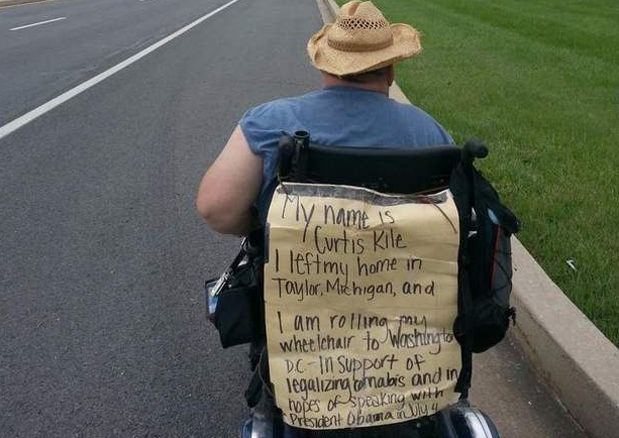 My name is
Curtis Kile
I left my home in
Taylor, Michigan, and
I am rolling my
wheelchair to Washington
D.C - In Support of
legalizing cannabis and in
hopes of speaking with
President Obama in July 4